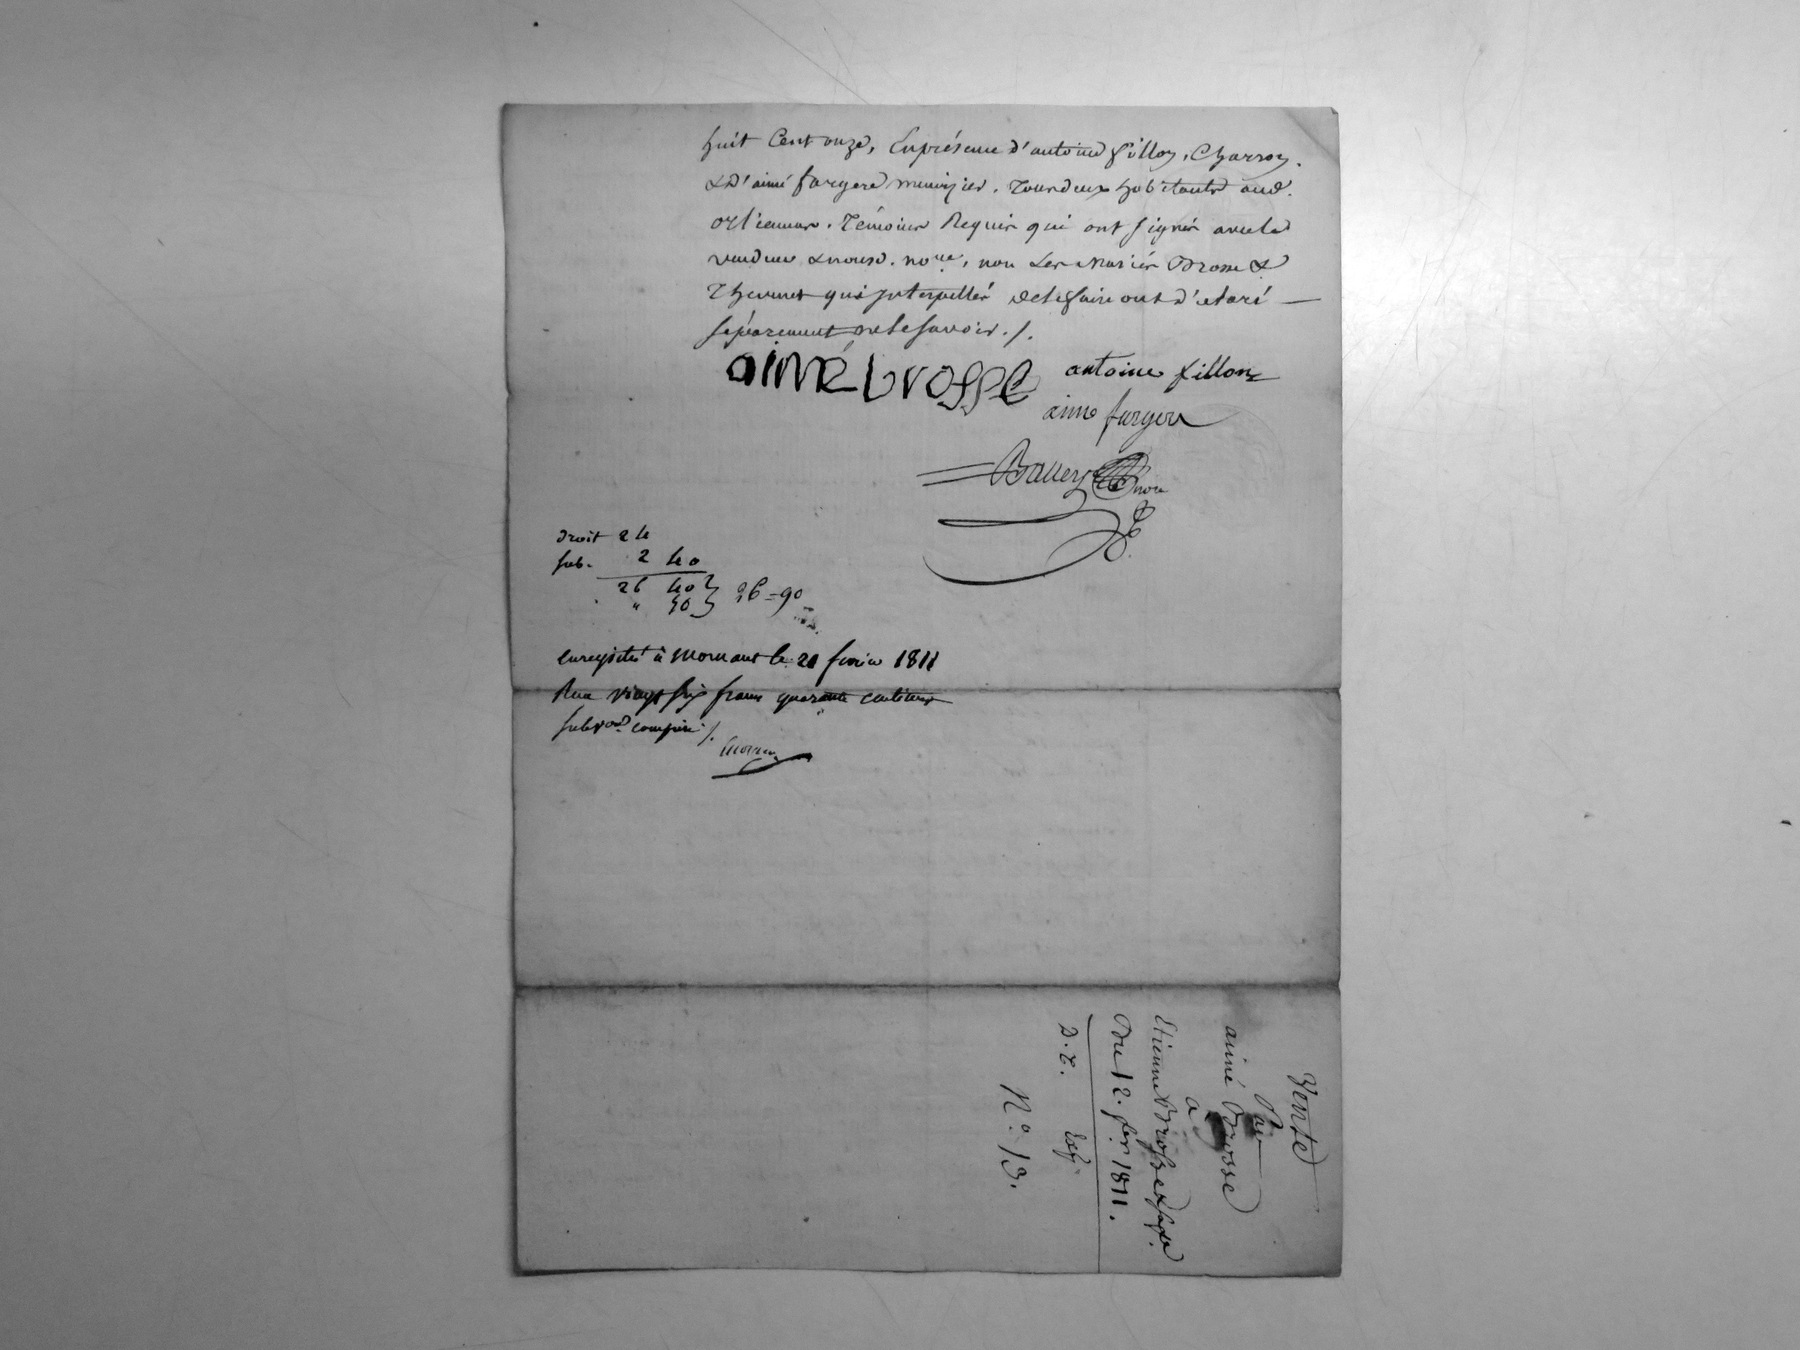 huit Cent onze, Enprésence d'antoine fillon, Charron.
& D'aimé fargere menuizier, tousdeux habitants aud.
orlienas, témoins Requis qui ont signés avecle
vendeur & nousd. no.re, non Les Mariés Brosse &
Thevenet qui interpellés de le faire ont d'eclaré —
séparement ne le savoir ./.
aimé brosse antoine fillon
aimé fargere
droit 24
sub. 2 40
26 40 } 26=90
" 50 }
enregistré à Mornant le 21 février 1811
Reçu vingt six francs quarante centimes
subv.on comprise ./.
Vente
Par
aimé Brosse
a
Etienne Brosse &
Du 12. fev.r 1811.
D. E.
N.o 13.